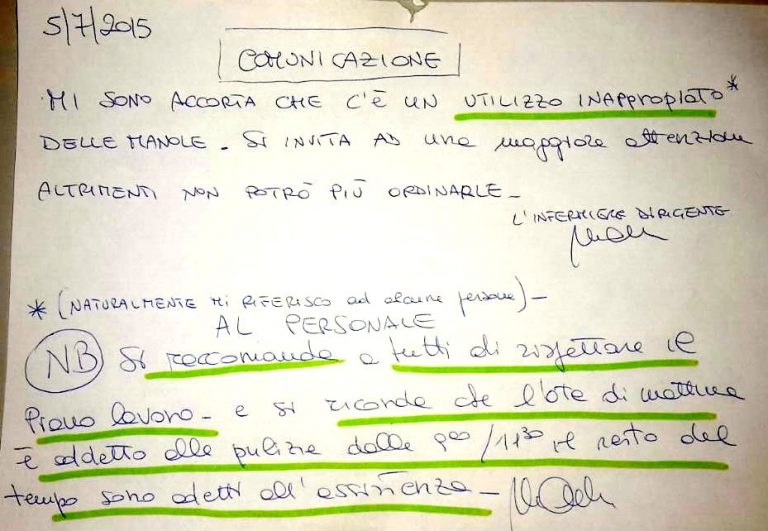 5/7/2015
COMUNICAZIONE
MI SONO ACCORTA CHE C'È UN UTILIZZO INAPPROPIATO*
DELLE MANOLE. SI INVITA AD una maggiore attenzione
ALTRIMENTI NON POTRÒ PIÙ ORDINARLE_
L'INFERMIERE DIRIGENTE
* (NATURALMENTE MI RIFERISCO ad alcune persone)_
AL PERSONALE
NB Si raccomanda a tutti di rispettare il
Piano lavoro_ e si ricorda che l'ota di mattina
è addetto alle pulizie dalle 9⁰⁰/11³⁰ il resto del
tempo sono adetti all'assistenza_